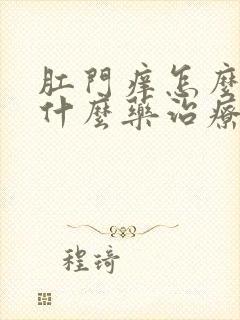 肛門癢怎麼
什麼藥治療
程琦